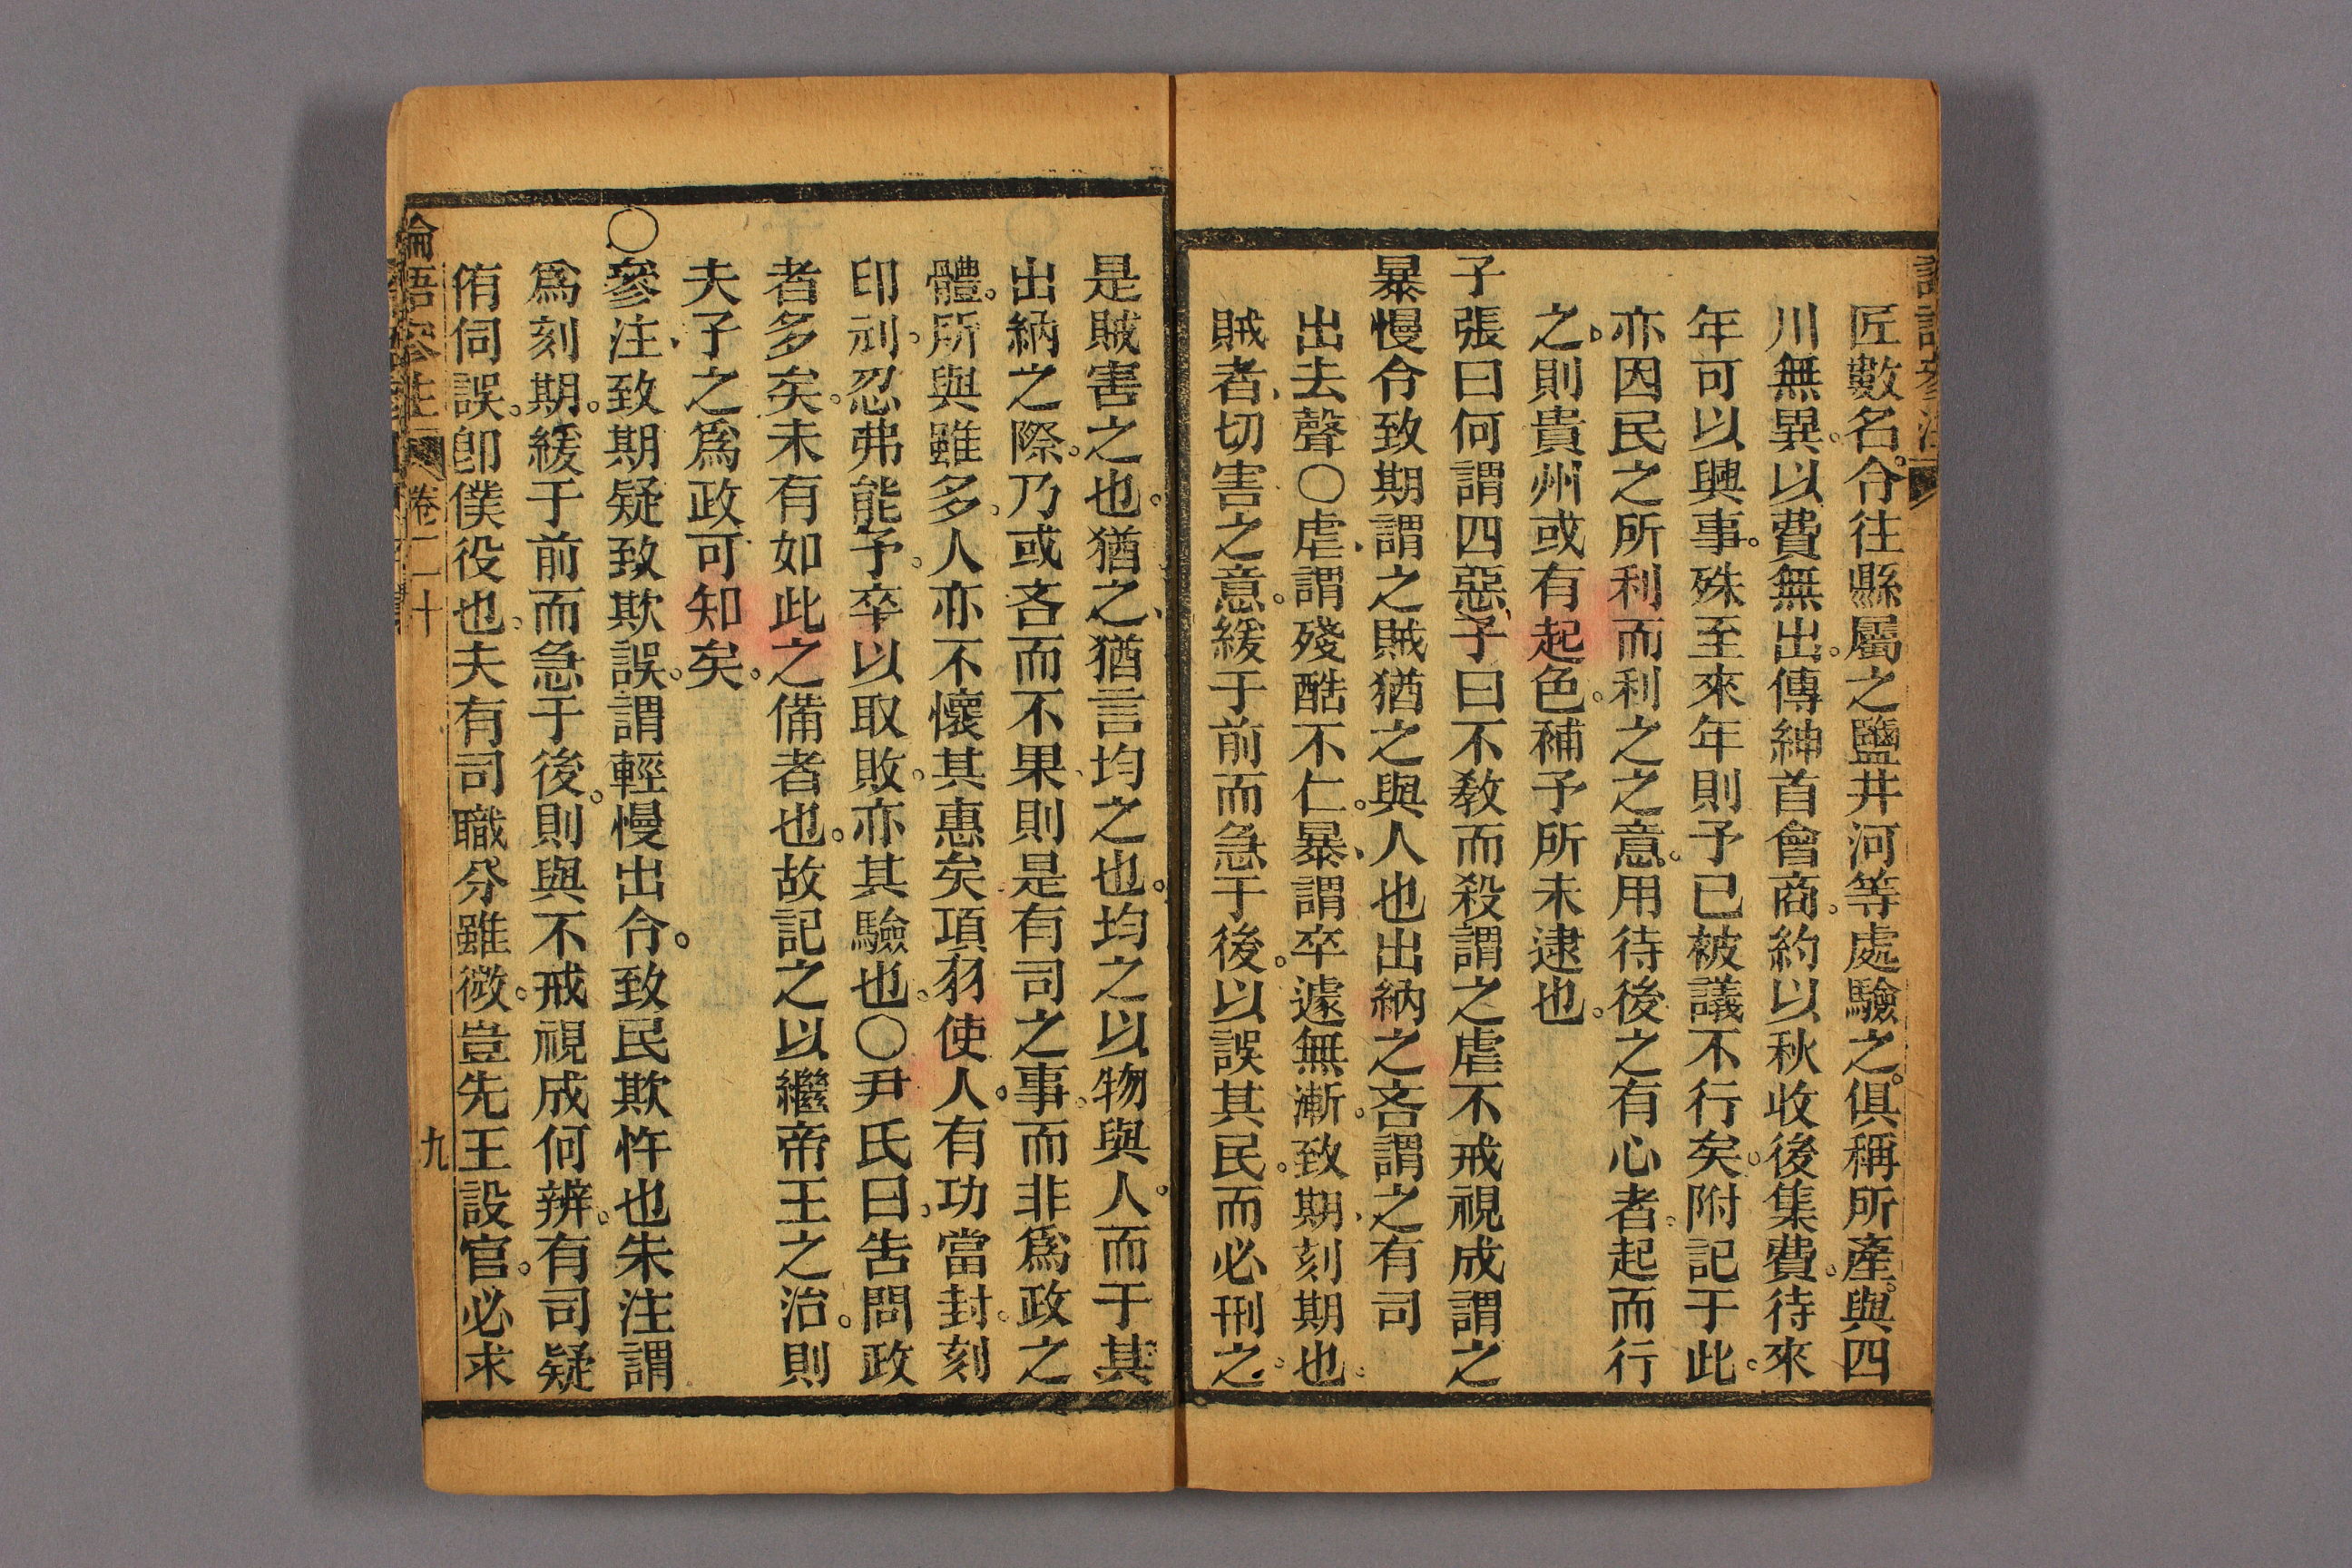 匠數名。令往縣屬之鹽井河等處驗之。俱稱所產。與四
川無異。以費無出。傳紳首會商。約以秋收後集費。待來
年可以興事。殊至來年則予已被議不行矣。附記于此。
亦因民之所利而利之之意。用待後之有心者。起而行
之。則貴州或有起色。補予所未逮也。
子張曰何謂四惡、子曰不敎而殺謂之虐不戒視成謂之
暴慢令致期謂之賊猶之與人也出納之吝謂之有司
出去聲○虐、謂殘酷不仁。暴、謂卒遽無漸。致期、刻期也。
賊者、切害之意。緩于前而急于後。以誤其民。而必刑之。
是賊害之也。猶之、猶言均之也。均之以物與人。而于其
出納之際。乃或吝而不果、則是有司之事。而非爲政之
體。所與雖多。人亦不懷其惠矣。項羽使人。有功當封。刻
印刓。忍弗能予。卒以取敗。亦其驗也。○尹氏曰、告問政
者多矣。未有如此之備者也。故記之以繼帝王之治。則
夫子之爲政可知矣。
○參注、致期疑致欺誤。謂輕慢出令。致民欺忤也朱注謂
爲刻期。緩于前而急于後。則與不戒視成何辨。有司疑
侑伺誤。卽僕役也。夫有司職分雖微。豈先王設官。必求
卷二十
九